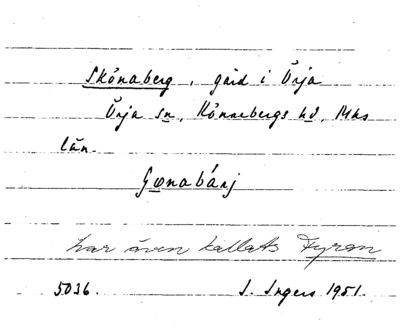 Skönaberg, gård i Örja
Örja sn, Rönnebergs hd, Mhs
län.
har även kallats Fyran
5036. I. Ingers 1951.